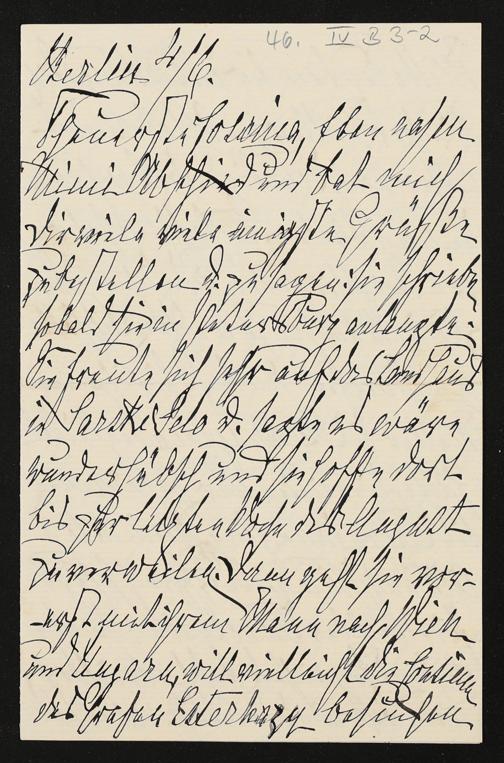 46. IV B 3-2
Berlin 4/6.
Theuerste Cosima, Eben nahm
Mimi Abschied und bat mich,
dir viele viele innigste Grüße
zu bestellen u. zu sagen: sie schriebe
sobald sie in Petersburg anlangte.
Sie freute sich sehr auf das Landhaus
in Sarskoe Selo u. sagte es wäre
wunderhübsch und sie hoffe dort
bis zur letzten Woche des August
zu verweilen. Dann geht sie vor-
erst mit ihrem Mann nach Wien
und Ungarn, will vielleicht die Cousine
des Grafen Esterhazy besuchen